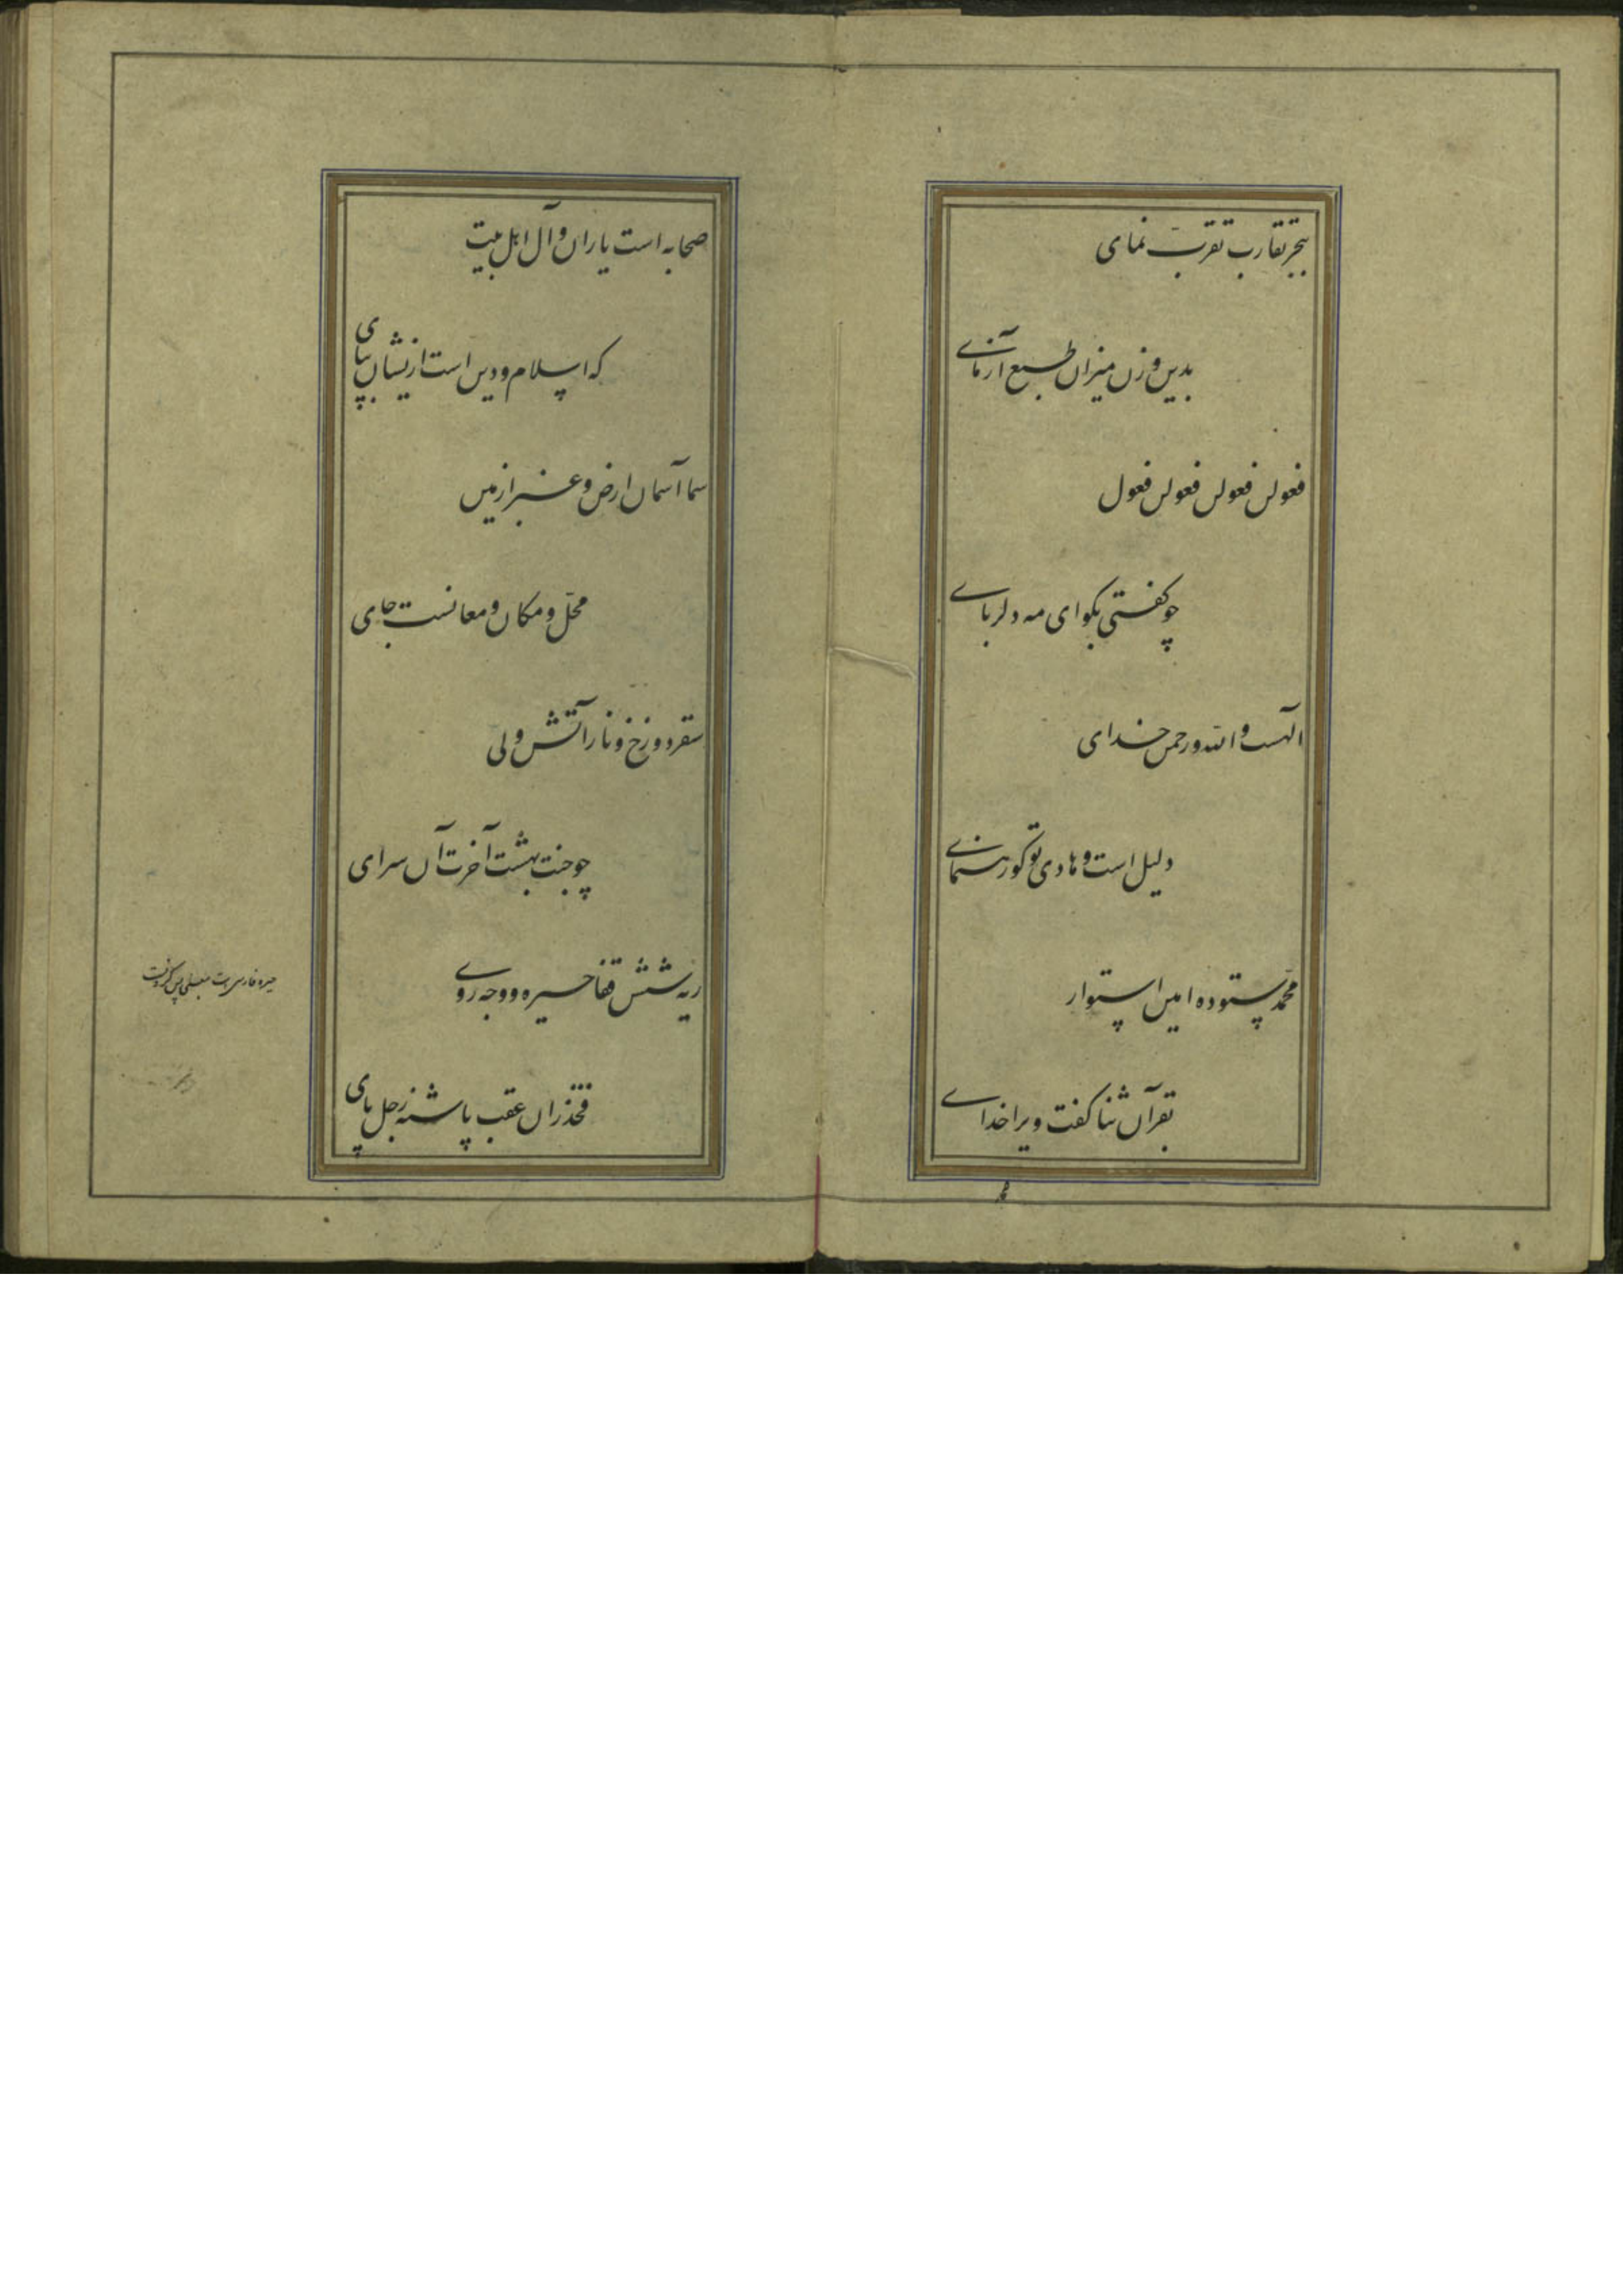 ببحر تقارب تقرب نمای
بدین وزن میزان طبع آزمای
فعولن فعولن فعولن فعول
چو گفتی بگو ای مه دلربای
الهست و الله و رحمن خدای
دلیل است و هادی تو گو رهنمای
محمّد ستوده امین استوار
بقرآن ثنا گفت ویرا خدای
صحابه است یاران و آل اهل بیت
که اسلام و دین است ازیشان بپای
سما آسمان ارض و غبرا زمین
محلّ و مکان و معانست جای
سقر دوزخ و نار آتش ولی
چو جنت بهشت آخرت آن سرای
ریه شش قفا حیره و وجه روی
فخذ ران عقب پاشنه رجل پای